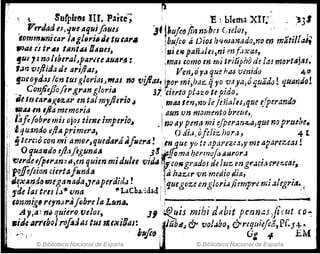 Suspiros III. Parte,
Verdad es, que aqui fuues
communicar la gloria de tu cara
mas es tras tantas llaues,
que yo no liberal, parece auara:
Tan vestida de aristas,
que oydas son tus glorias, mas no vistas.
Confiesso ser gran gloria 37
de tu cara gozar en tal mysterio,
mas en esta memoria
la fe sobre mis ojos tiene imperio,
quando esta primera,
O quando esta segunda 38
verde esperança, en quien mi dulce vida
possession cierta funda
dexando me ganada, ya perdida!
yde las tres la * vna * Charidad
conmigo reynarà sobre la Luna.
Ay, a: no quiero velos, 39
busco
Emblema XII. 231
busco sin nubes Cielos,
busco à Dios humanado, no en mātillas,
ni en pañales, ni en faxas,
mas como en mi triūpho de las mortajas.
Ven, ò ya que has venido 40
por mi, haz q̃ yo vaya, ò quādo! quando!
cierto plazo te pido,
mas ten, no le señales, que esperando
aun vn momento breue,
no ay pena mi esperança, que no prueue.
O dia, ò feliz hora, 41
en que yo te aparezca, y me aparezcas!
consagrados de luz en gracia crezcas,
à hazer vn medio dia,
que goze en gloria siempre mi alegria.
Quis mihi dabit pennas sicut co-
lūba, & volabo, & requiescā, Ps. 54.
Gg 4 EM
© Biblioteca Nacional de España
© Biblioteca Nacional de España